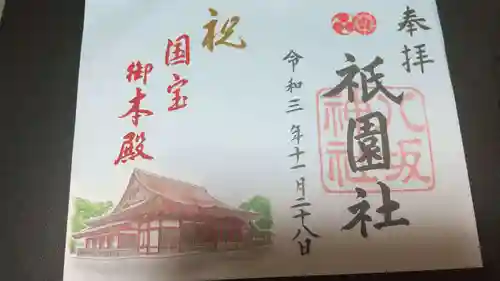 奉拝
祇園社
八坂神社
令和三年十一月二十八日
祝
国宝
御本殿